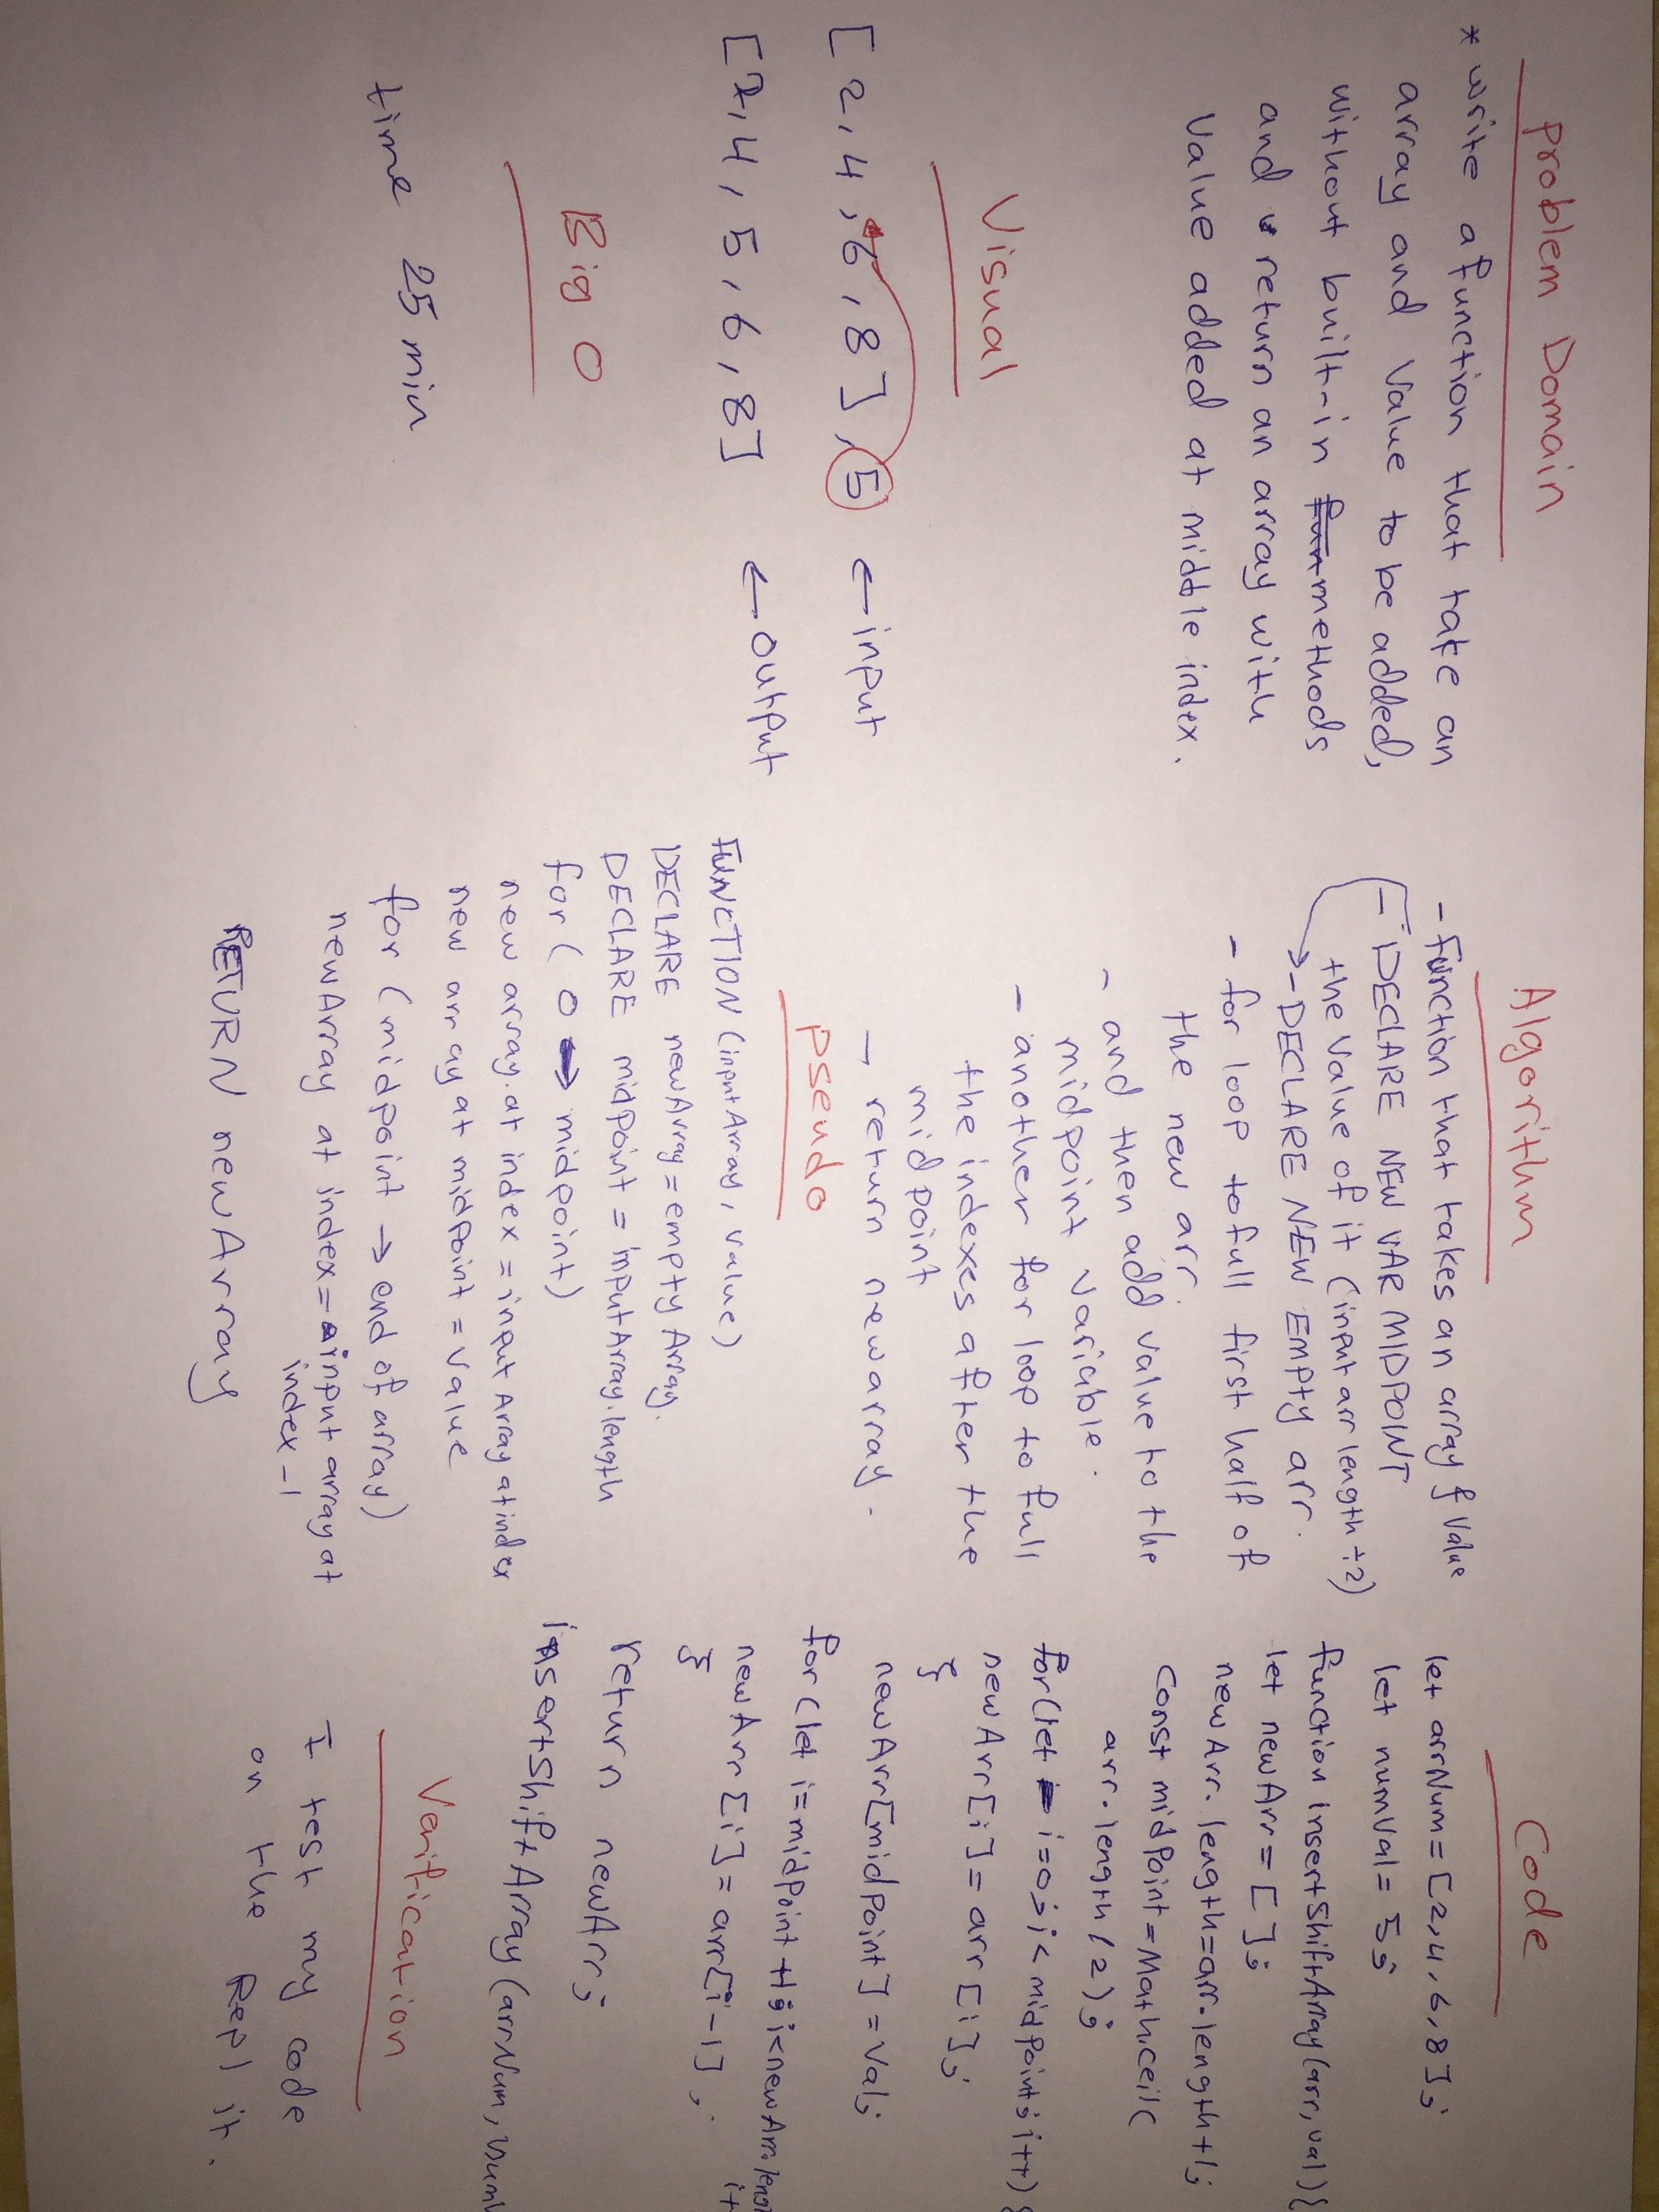 Problem Domain
* write a function that take an
array and value to be added,
without built-in methods
and return an array with
value added at middle index.
Visual
[2,4,6,8],5 ← input
[2,4,5,6,8] ← output
Big O
time 25 min
Algorithm
- function that takes an array & value
- DECLARE NEW VAR MIDPOINT
the value of it (input arr length ÷2)
→ - DECLARE NEW EMPTY arr.
- for loop to full first half of
the new arr.
- and then add value to the
midpoint variable.
- another for loop to full
the indexes after the
midpoint
- return new array.
Pseudo
FUNCTION (inputArray, value)
DECLARE newArray = empty Array.
DECLARE midpoint = inputArray.length
for (0 → midpoint)
new array at index = input Array at index
new array at midpoint = value
for (midpoint → end of array)
newArray at index = input array at
index -1
RETURN newArray
Code
let arrNum=[2,4,6,8];
let numVal= 5;
function insertShiftArray(arr,val){
let newArr=[];
newArr.length=arr.length+1;
const midPoint=Math.ceil(
arr.length/2);
for(let i=0;i<midPoint;i++){
newArr[i]=arr[i];
}
newArr[midPoint]=val;
for(let i=midPoint+1;i<newArr.length
i+
newArr[i]=arr[i-1];
}
return newArr;
insertShiftArray(arrNum,
Verification
I test my code
on the Repl it.